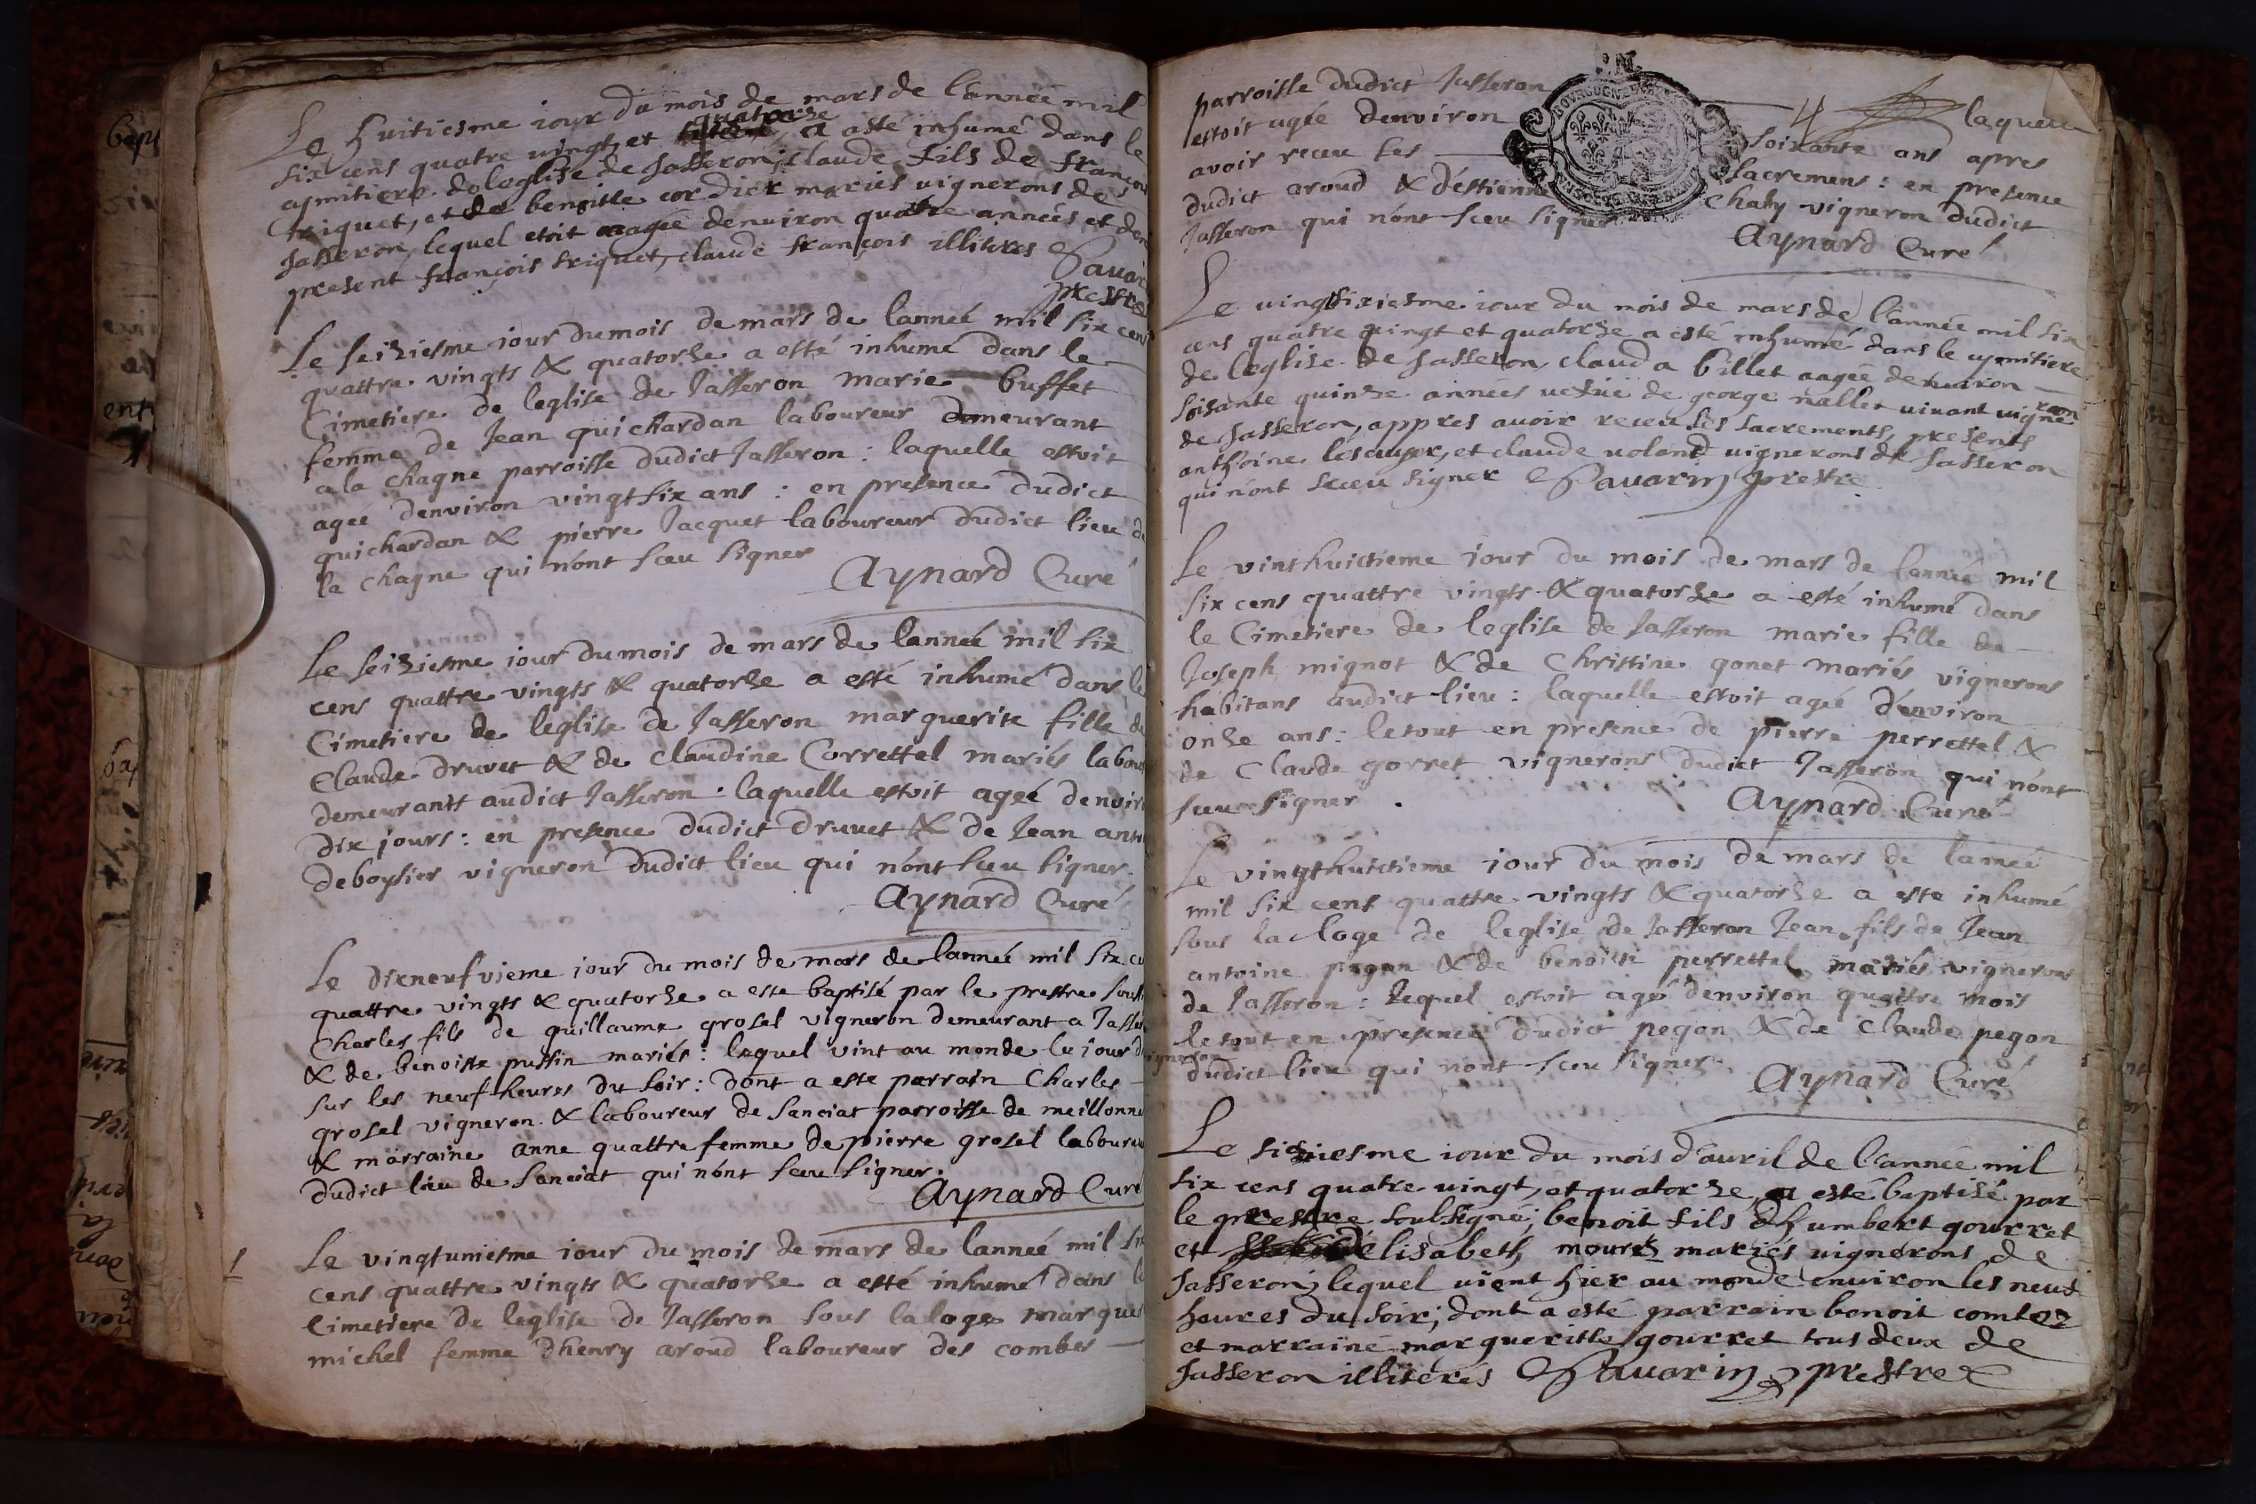 Le huitiesme iour du mois de mars de l'année mil
six cens quatre vingt, et quatorze a esté inhumé dans le
cymitiere de leglise de Jasseron, claude fils de françois
triquet, et de benoitte cordier mariés vignerons de
Jasseron, lequel etoit aagée denviron quatre années et demi
present françois triquet, claude françois illiteres Pauarin
prestre
Le seiziesme jour du mois de mars de lanneé mil six cens
quattre vingts & quatorze a esté inhumé dans le
Cimetiere de leglise de Jasseron marie buffet
femme de Jean quichardan laboureur demeurant
a la chagne parroisse dudict Jasseron : laquelle estoit
agee denviron vingt six ans : en presence dudict
quichardan & pierre Jacquet laboureur dudict lieu de
la chagne qui n'ont sceu signer
Aynard Curé
Le seiziesme jour du mois de mars de lanneé mil six
cens quattre vingts & quatorze a esté inhumé dans le
Cimetiere de leglise de Jasseron marguerite fille de
Claude druvet & de claudine Correttel mariés labour
demeurants audict Jasseron : laquelle estoit ageé denviro
dix jours : en presence dudict druvet & de Jean ant
deboysier vigneron dudict lieu qui n'ont sceu signer.
Aynard Curé
Le dixneufvieme jour du mois de mars de lanneé mil six ce
quattre vingts & quatorze a este baptisé par le prestre sous
Charles fils de guillaume grosel vigneron demeurant a Jasse
& de benoiste pussin mariés : lequel vint au monde le jour d
sur les neuf heures du soir : dont a este parrain Charles
grosel vigneron & laboureur de Sanciat parroisse de meillonne
& marraine anne quattre femme de pierre grosel laboureu
dudict lieu de Sanciat qui n'ont sceu signer.
Aynard Curé
Le vingtuniesme jour du mois de mars de lanneé mil six
cens quattre vingts & quatorze a esté inhumé dans le
Cimetiere de leglise de Jasseron sous la loge margue
michel femme dhenry aroud laboureur des combes
parroisse dudict Jasseron laquelle
estoit agée denviron soixante ans apres
avoir receu les sacremens : en presence
dudict aroud & d'estienne Chaby vigneron dudict
Jasseron qui n'ont sceu signer
Aynard Curé
Le vingtsixiesme iour du mois de mars de l'année mil six
cens quatre vingt et quatorze a esté inhumé dans le cymitiere
de leglise de Jasseron, clauda billet aagée denuiron
soisante quinze années vefue de george nallet uiuant uigneron
de Jasseron, appres auoir receu ses sacrements, presents
anthoine, et claude uoland uignerons de Jasseron
qui n'ont sceu signer Pauarin prestre
Le vinthuictieme jour du mois de mars de lannée mil
six cens quattre vingts & quatorze a esté inhumé dans
le Cimetiere de leglise de Jasseron marie fille de
Joseph mignot & de Christine gonet mariés vignerons
habitans audict lieu : laquelle estoit ageé d'environ
onze ans : le tout en presence de pierre perrettel &
de Claude gorret vignerons dudict Jasseron qui n'ont
sceu signer.
Aynard Curé
Le vingthuictieme jour du mois de mars de lanneé
mil six cens quattre vingts & quatorze a este inhumé
sous la loge de leglise de Jasseron Jean fils de Jean
antoine pegon & de benoiste perrettel mariés vignerons
de Jasseron : lequel estoit agé denviron quattre mois
le tout en presence dudict pegon & de Claude pegon
vigneron
dudict lieu qui n'ont sceu signer.
Aynard Curé
Le siziesme iour du mois d'auril de l'année mil
six cens quatre uingt, et quatorze, a esté baptisé par
le prestre soubsigné; benoit fils d'humbert gourret
et elisabeth mourez mariés uignerons de
Jasseron; lequel uient hier au monde enuiron les neuf
heures du soir; dont a esté parrain benoit comtez
et marraine margueritte gourret tous deux de
Jasseron illiterés Pauarin prestre